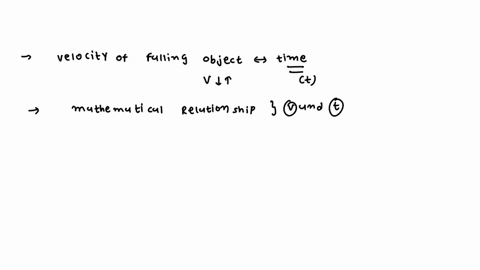 → velocity of falling object ↔ time
V ↓↑ (t)
→ mathematical Relationship } v and t